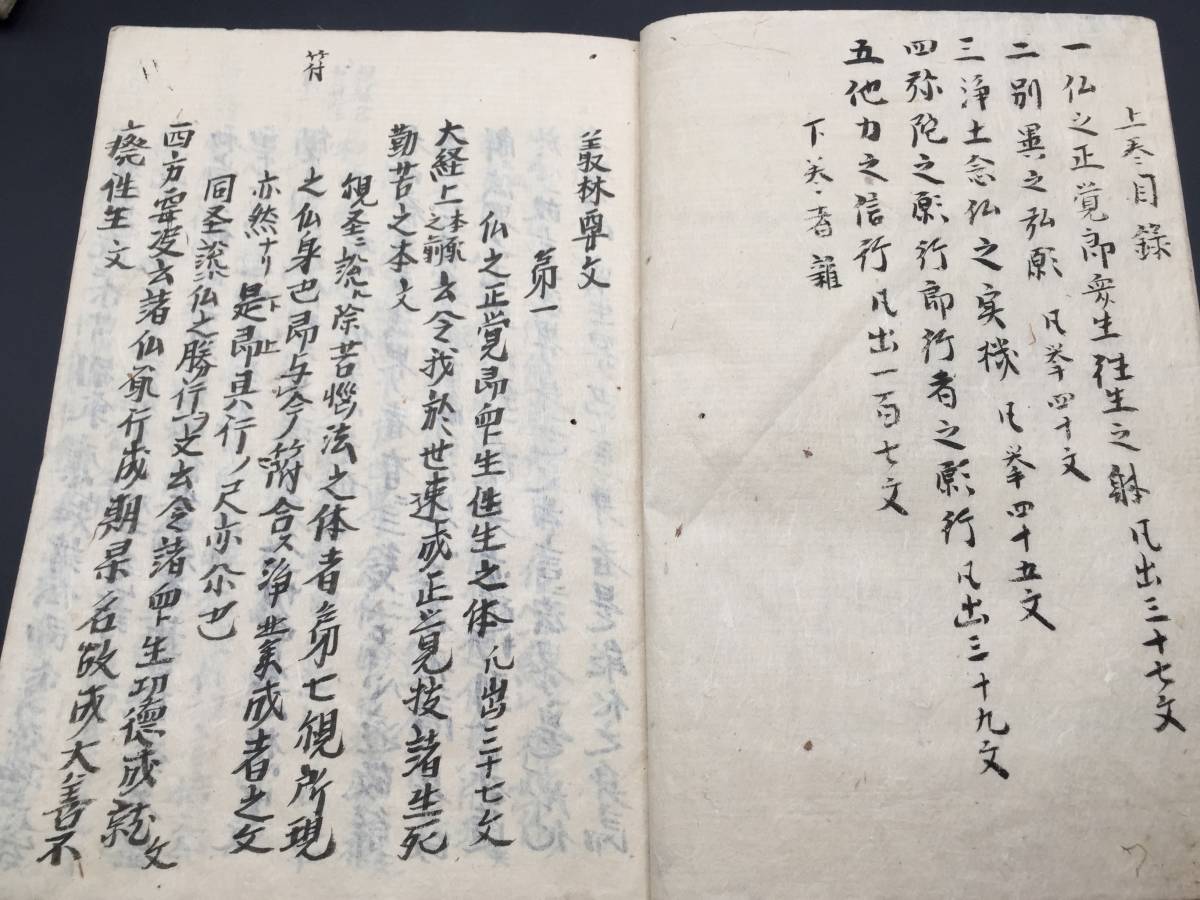 上巻目録
一仏之正覚即衆生往生之躰凡出三十七文
二別異之弘願 凡挙四十文
三浄土念仏之実機 凡挙四十五文
四弥陀之願行即行者之願行凡出三十九文
五他力之信行凡出一百七文
林尊文
第一
仏之正覚即衆生往生之体凡出三十七文
大経上云令我於世速成正覚抜諸生死
勤苦之本文
観圣説除苦悩法之体者第七観所現
之仏身也即与今ノ符合ス浄業成者之文
亦然ナリ是即具行ノ尺亦尒也
同圣説仏之勝行文云令諸衆生功徳成就文
四方要决云諸仏願行成期果名故成大善不
廃往生文
符